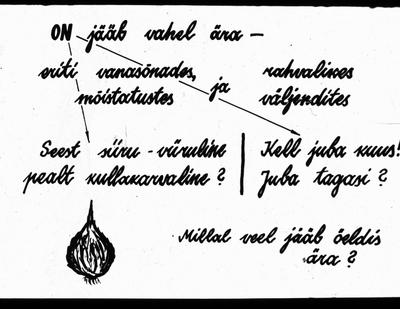 ON jääb vahel ära —
eriti vanasõnades, ja rahvalikes
mõistatustes väljendites
Seest siiru-viiruline
pealt kullakarvaline?
Kell juba kuus!
Juba tagasi?
Millal veel jääb öeldis
ära?